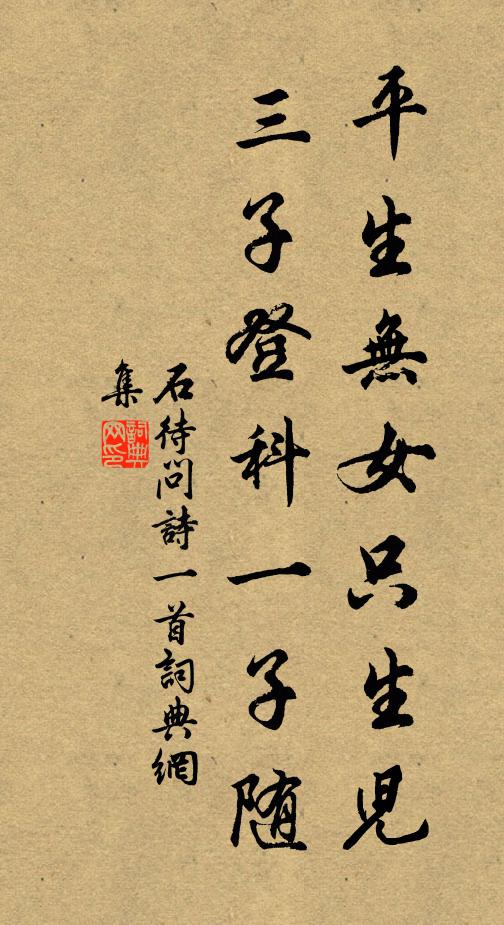 平生無女只生兒
三子登科一子隨
石待問詩一首詞典網
集
詞典
网印